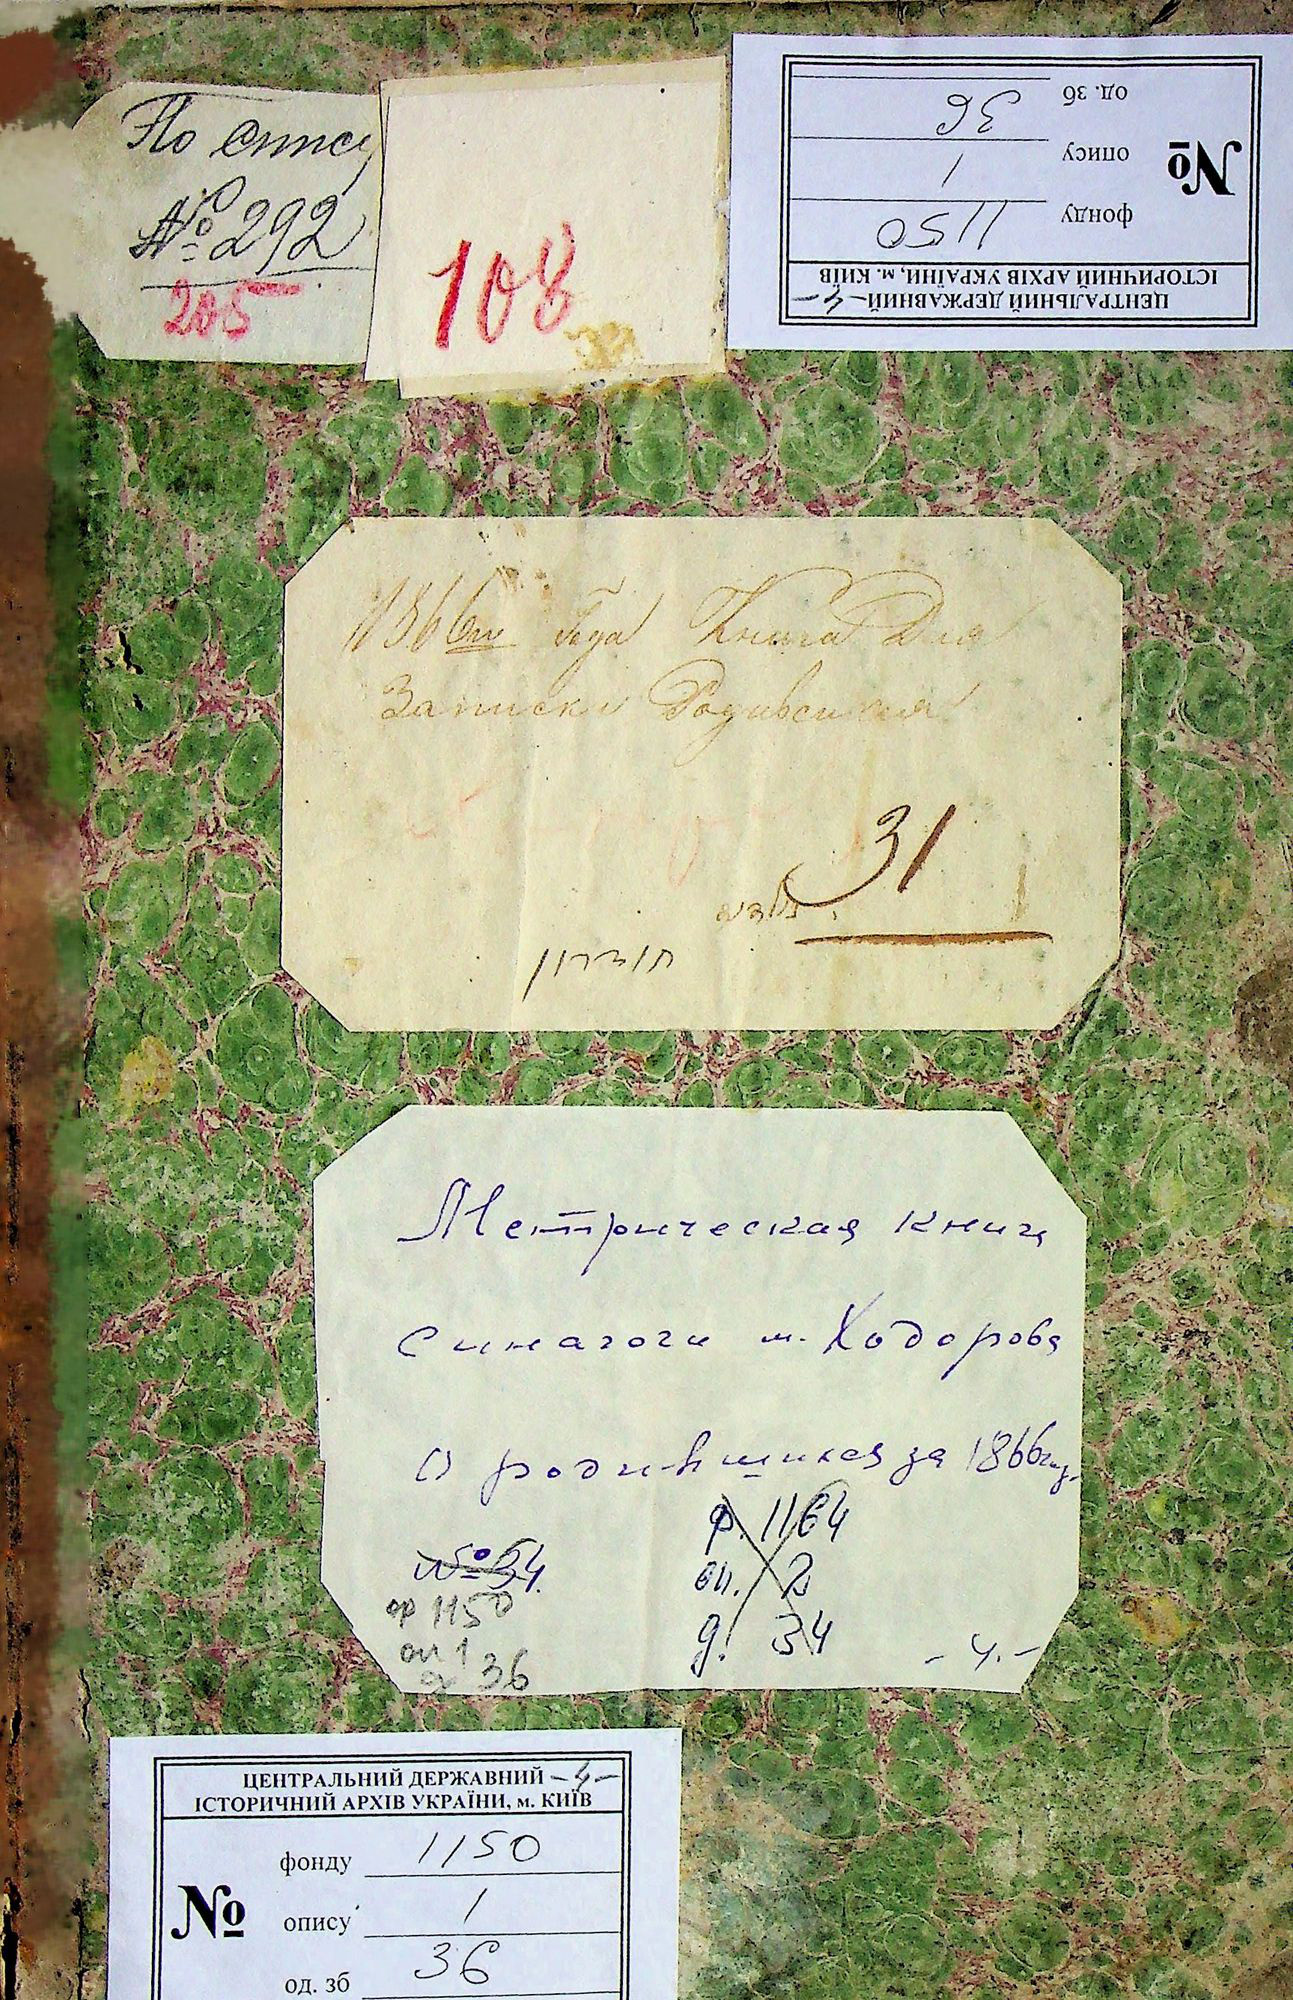 По опису
№ 292
205
108
ЦЕНТРАЛЬНИЙ -4-
ДЕРЖАВНИЙ
ІСТОРИЧНИЙ АРХІВ УКРАЇНИ, м. КИЇВ
фонду 1150
№ опису 1
од. зб 36
1866го Года Книга Для
Записки Родившихся
31
חודרוו
Метрическая книга
синагоги м. Ходорова
о родившихся за 1866 год.
№ 34.
ф. 1164
оп. 2
д. 34
ф 1150
оп 1
д 36
- 4. -
ЦЕНТРАЛЬНИЙ ДЕРЖАВНИЙ -4-
ІСТОРИЧНИЙ АРХІВ УКРАЇНИ, м. КИЇВ
фонду 1150
№ опису 1
од. зб 36